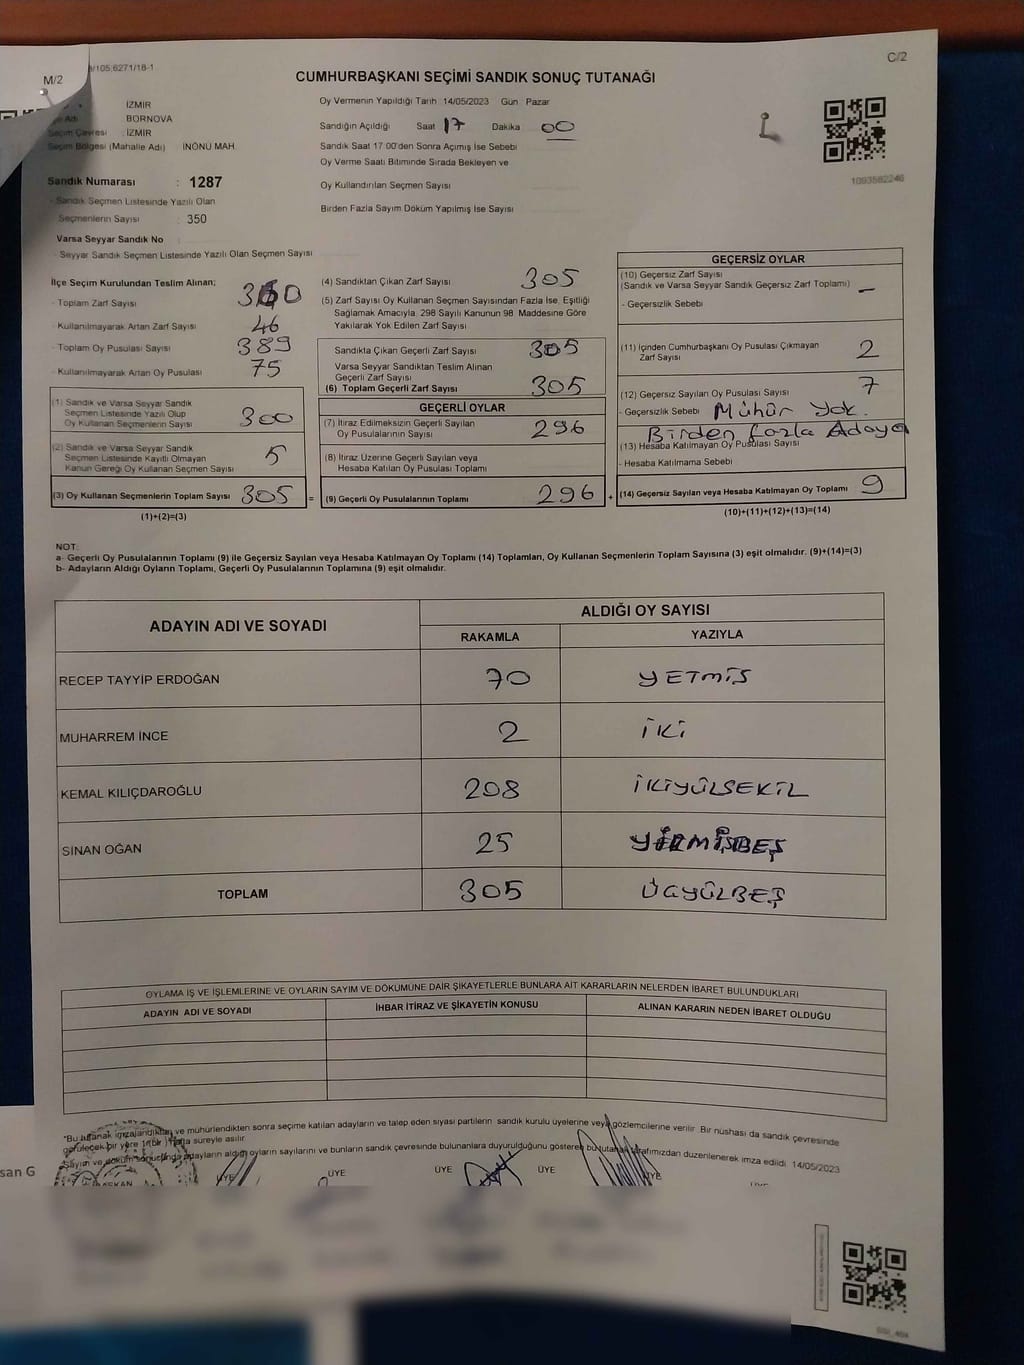 M/2
/105.6271/18-1
C/2
CUMHURBAŞKANI SEÇİMİ SANDIK SONUÇ TUTANAĞI
İZMİR
Adı BORNOVA
Seçim Çevresi : İZMİR
Seçim Bölgesi (Mahalle Adı) : İNÖNÜ MAH.
Oy Vermenin Yapıldığı Tarih 14/05/2023 Gün Pazar
Sandığın Açıldığı Saat 17 Dakika 00
Sandık Saat 17:00'den Sonra Açımış İse Sebebi
Oy Verme Saati Bitiminde Sırada Bekleyen ve
Oy Kullandırılan Seçmen Sayısı
Birden Fazla Sayım Döküm Yapılmış İse Sayısı
1093582246
Sandık Numarası : 1287
- Sandık Seçmen Listesinde Yazılı Olan
Seçmenlerin Sayısı : 350
Varsa Seyyar Sandık No
- Seyyar Sandık Seçmen Listesinde Yazılı Olan Seçmen Sayısı
İlçe Seçim Kurulundan Teslim Alınan;
- Toplam Zarf Sayısı
- Kullanılmayarak Artan Zarf Sayısı 46
- Toplam Oy Pusulası Sayısı 389
- Kullanılmayarak Artan Oy Pusulası 75
(1) Sandık ve Varsa Seyyar Sandık
Seçmen Listesinde Yazılı Olup
Oy Kullanan Seçmenlerin Sayısı 300
(2) Sandık ve Varsa Seyyar Sandık
Seçmen Listesinde Kayıtlı Olmayan
Kanun Gereği Oy Kullanan Seçmen Sayısı 5
(3) Oy Kullanan Seçmenlerin Toplam Sayısı 305 =
(1)+(2)=(3)
(4) Sandıktan Çıkan Zarf Sayısı 305
(5) Zarf Sayısı Oy Kullanan Seçmen Sayısından Fazla İse, Eşitliği
Sağlamak Amacıyla; 298 Sayılı Kanunun 98. Maddesine Göre
Yakılarak Yok Edilen Zarf Sayısı
Sandıkta Çıkan Geçerli Zarf Sayısı 305
Varsa Seyyar Sandıktan Teslim Alınan
Geçerli Zarf Sayısı
(6) Toplam Geçerli Zarf Sayısı 305
GEÇERLİ OYLAR
(7) İtiraz Edilmeksizin Geçerli Sayılan
Oy Pusulalarının Sayısı 296
(8) İtiraz Üzerine Geçerli Sayılan veya
Hesaba Katılan Oy Pusulası Toplamı
(9) Geçerli Oy Pusulalarının Toplamı 296 +
GEÇERSİZ OYLAR
(10) Geçersiz Zarf Sayısı
(Sandık ve Varsa Seyyar Sandık Geçersiz Zarf Toplamı) -
- Geçersizlik Sebebi
(11) İçinden Cumhurbaşkanı Oy Pusulası Çıkmayan
Zarf Sayısı 2
(12) Geçersiz Sayılan Oy Pusulası Sayısı 7
- Geçersizlik Sebebi Mühür Yok.
Birden fazla Adaya
(13) Hesaba Katılmayan Oy Pusulası Sayısı
- Hesaba Katılmama Sebebi
(14) Geçersiz Sayılan veya Hesaba Katılmayan Oy Toplamı 9
(10)+(11)+(12)+(13)=(14)
NOT:
a- Geçerli Oy Pusulalarının Toplamı (9) ile Geçersiz Sayılan veya Hesaba Katılmayan Oy Toplamı (14) Toplamları, Oy Kullanan Seçmenlerin Toplam Sayısına (3) eşit olmalıdır. (9)+(14)=(3)
b- Adayların Aldığı Oyların Toplamı, Geçerli Oy Pusulalarının Toplamına (9) eşit olmalıdır.
ADAYIN ADI VE SOYADI
ALDIĞI OY SAYISI
RAKAMLA YAZIYLA
RECEP TAYYİP ERDOĞAN 70 YETMİŞ
MUHARREM İNCE 2 İKİ
KEMAL KILIÇDAROĞLU 208 İKİYÜLSEKİL
SİNAN OĞAN 25 YİRMİBEŞ
TOPLAM 305 ÜÇYÜLBEŞ
OYLAMA İŞ VE İŞLEMLERİNE VE OYLARIN SAYIM VE DÖKÜMÜNE DAİR ŞİKAYETLERLE BUNLARA AİT KARARLARIN NELERDEN İBARET BULUNDUKLARI
ADAYIN ADI VE SOYADI İHBAR İTİRAZ VE ŞİKAYETİN KONUSU ALINAN KARARIN NEDEN İBARET OLDUĞU
*Bu tutanak imzalandıktan ve mühürlendikten sonra seçime katılan adayların ve talep eden siyasi partilerin sandık kurulu üyelerine veya gözlemcilerine verilir. Bir nüshası da sandık çevresinde
görülecek bir yere 1 (bir) hafta süreyle asılır.
Sayım ve döküm sonucunda adayların aldığı oyların sayılarını ve bunların sandık çevresinde bulunanlara duyurulduğunu gösteren bu tutanak tarafımızdan düzenlenerek imza edildi. 14/05/2023
san G
BAŞKAN ÜYE ÜYE ÜYE ÜYE ÜYE